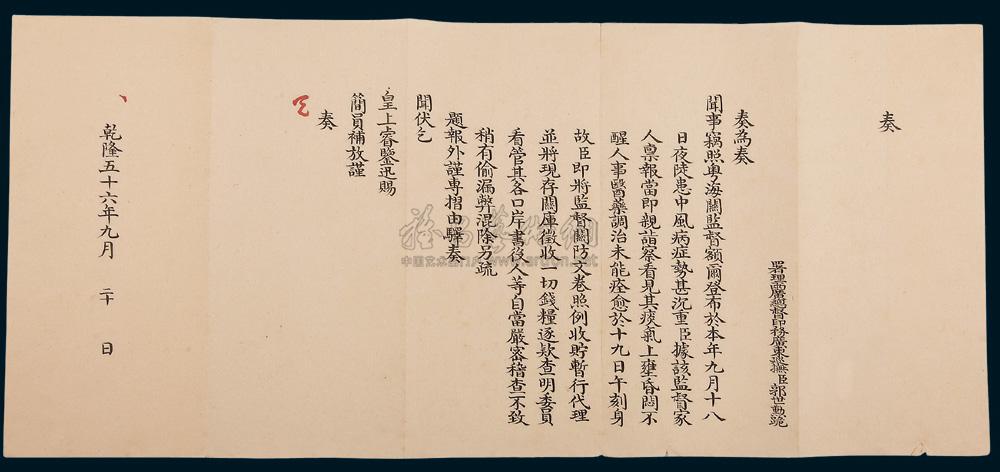 奏
署理兩廣總督印務廣東巡撫臣郭世勳跪
奏為奏
聞事竊照粵海關監督額爾登布於本年九月十八
日夜陡患中風病症勢甚沉重臣據該監督家
人稟報當即親詣察看見其痰氣上壅昏悶不
醒人事醫藥調治未能痊愈於十九日午刻身
故臣即將監督關防文卷照例收貯暫行代理
並將現存關庫徵收一切錢糧逐款查明委員
看管其各口岸書役人等自當嚴密稽查不致
稍有偷漏弊混除另疏
題報外謹專摺由驛奏
聞伏乞
皇上睿鑒迅賜
簡員補放謹
奏
乾隆五十六年九月 二十 日
中国艺术品门户网 www.artron.net